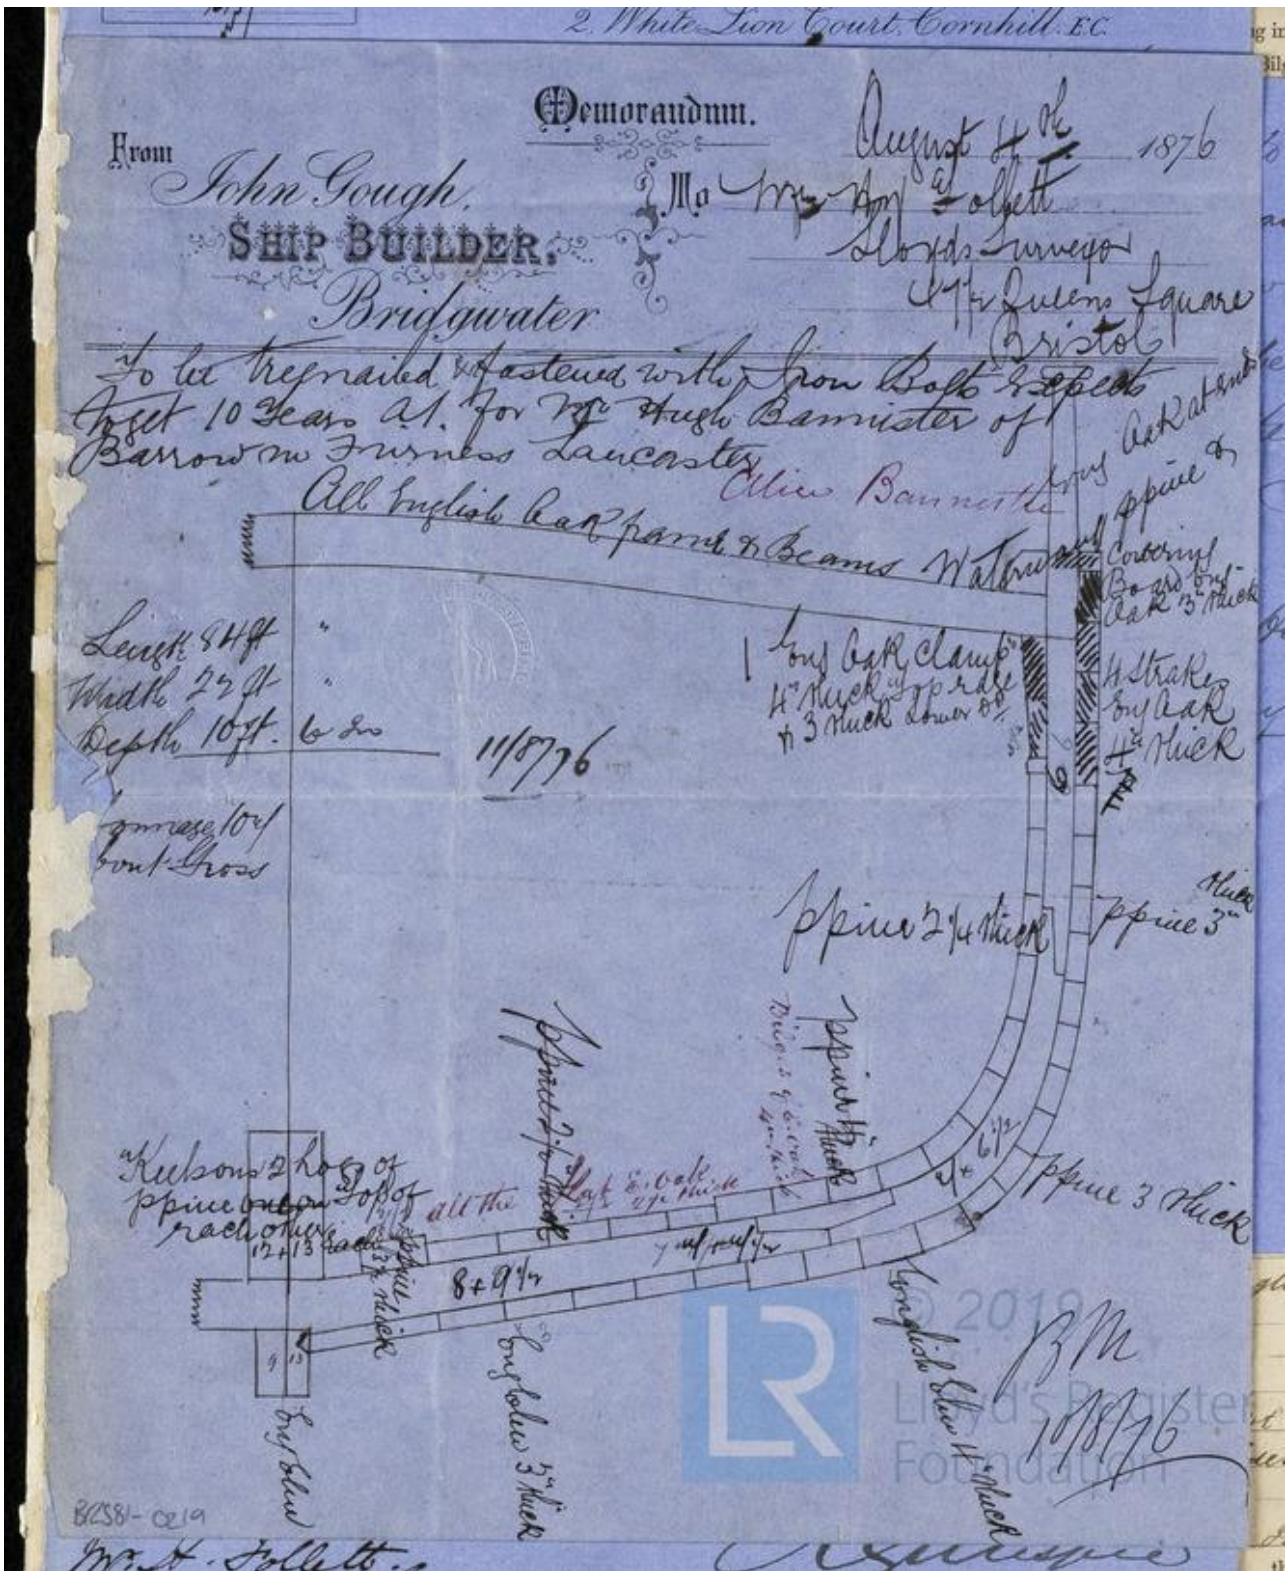 2, White Lion Court, Cornhill. E.C.
Memorandum.
August 4th 1876
From
John Gough,
SHIP BUILDER,
Bridgwater
To
Follett
Lloyds Surveyor
Queens Square
Bristol
To be tregnailed & fastened with Iron Bolts Expects
to get 10 Years A1. for Mr Hugh Bannister of
Barrow in Furness Lancaster
Alice Bannister
All English Oak frame & Beams
Waterway ppine &
Eng Oak at ends
Covering
Board Eng
Oak 3" thick
Length 84 ft "
Width 22 ft "
Depth 10 ft. 6 In
11/8/76
Eng Oak Clamp
4" thick Top edge
& 3 thick Lower Do
4 Strakes
Eng Oak
4" thick
Tonnage 104
bout Gross
ppine 2 1/4 thick
ppine 3" thick
ppine 4" thick
Bilges of E. oak
4 in thick
6 1/2
ppine 3 thick
Keelsons 2 hogs of
ppine one on Top of
each other
12 + 13 each
all the flat E. oak
2 1/4 thick
ppine
3 1/2 thick
8 + 9 1/2
9 13
Eng Elm
Eng Elm 3" thick
English Elm 4" thick
BM
10/8/76
LR
© 2019
Lloyd's Register
Foundation
BRS81-0219
Wm H. Follett